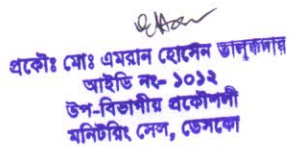 প্রকৌঃ মোঃ এমরান হোসেন তালুকদার
আইডি নং- ১০১২
উপ-বিভাগীয় প্রকৌশলী
মনিটরিং সেল, ডেসকো